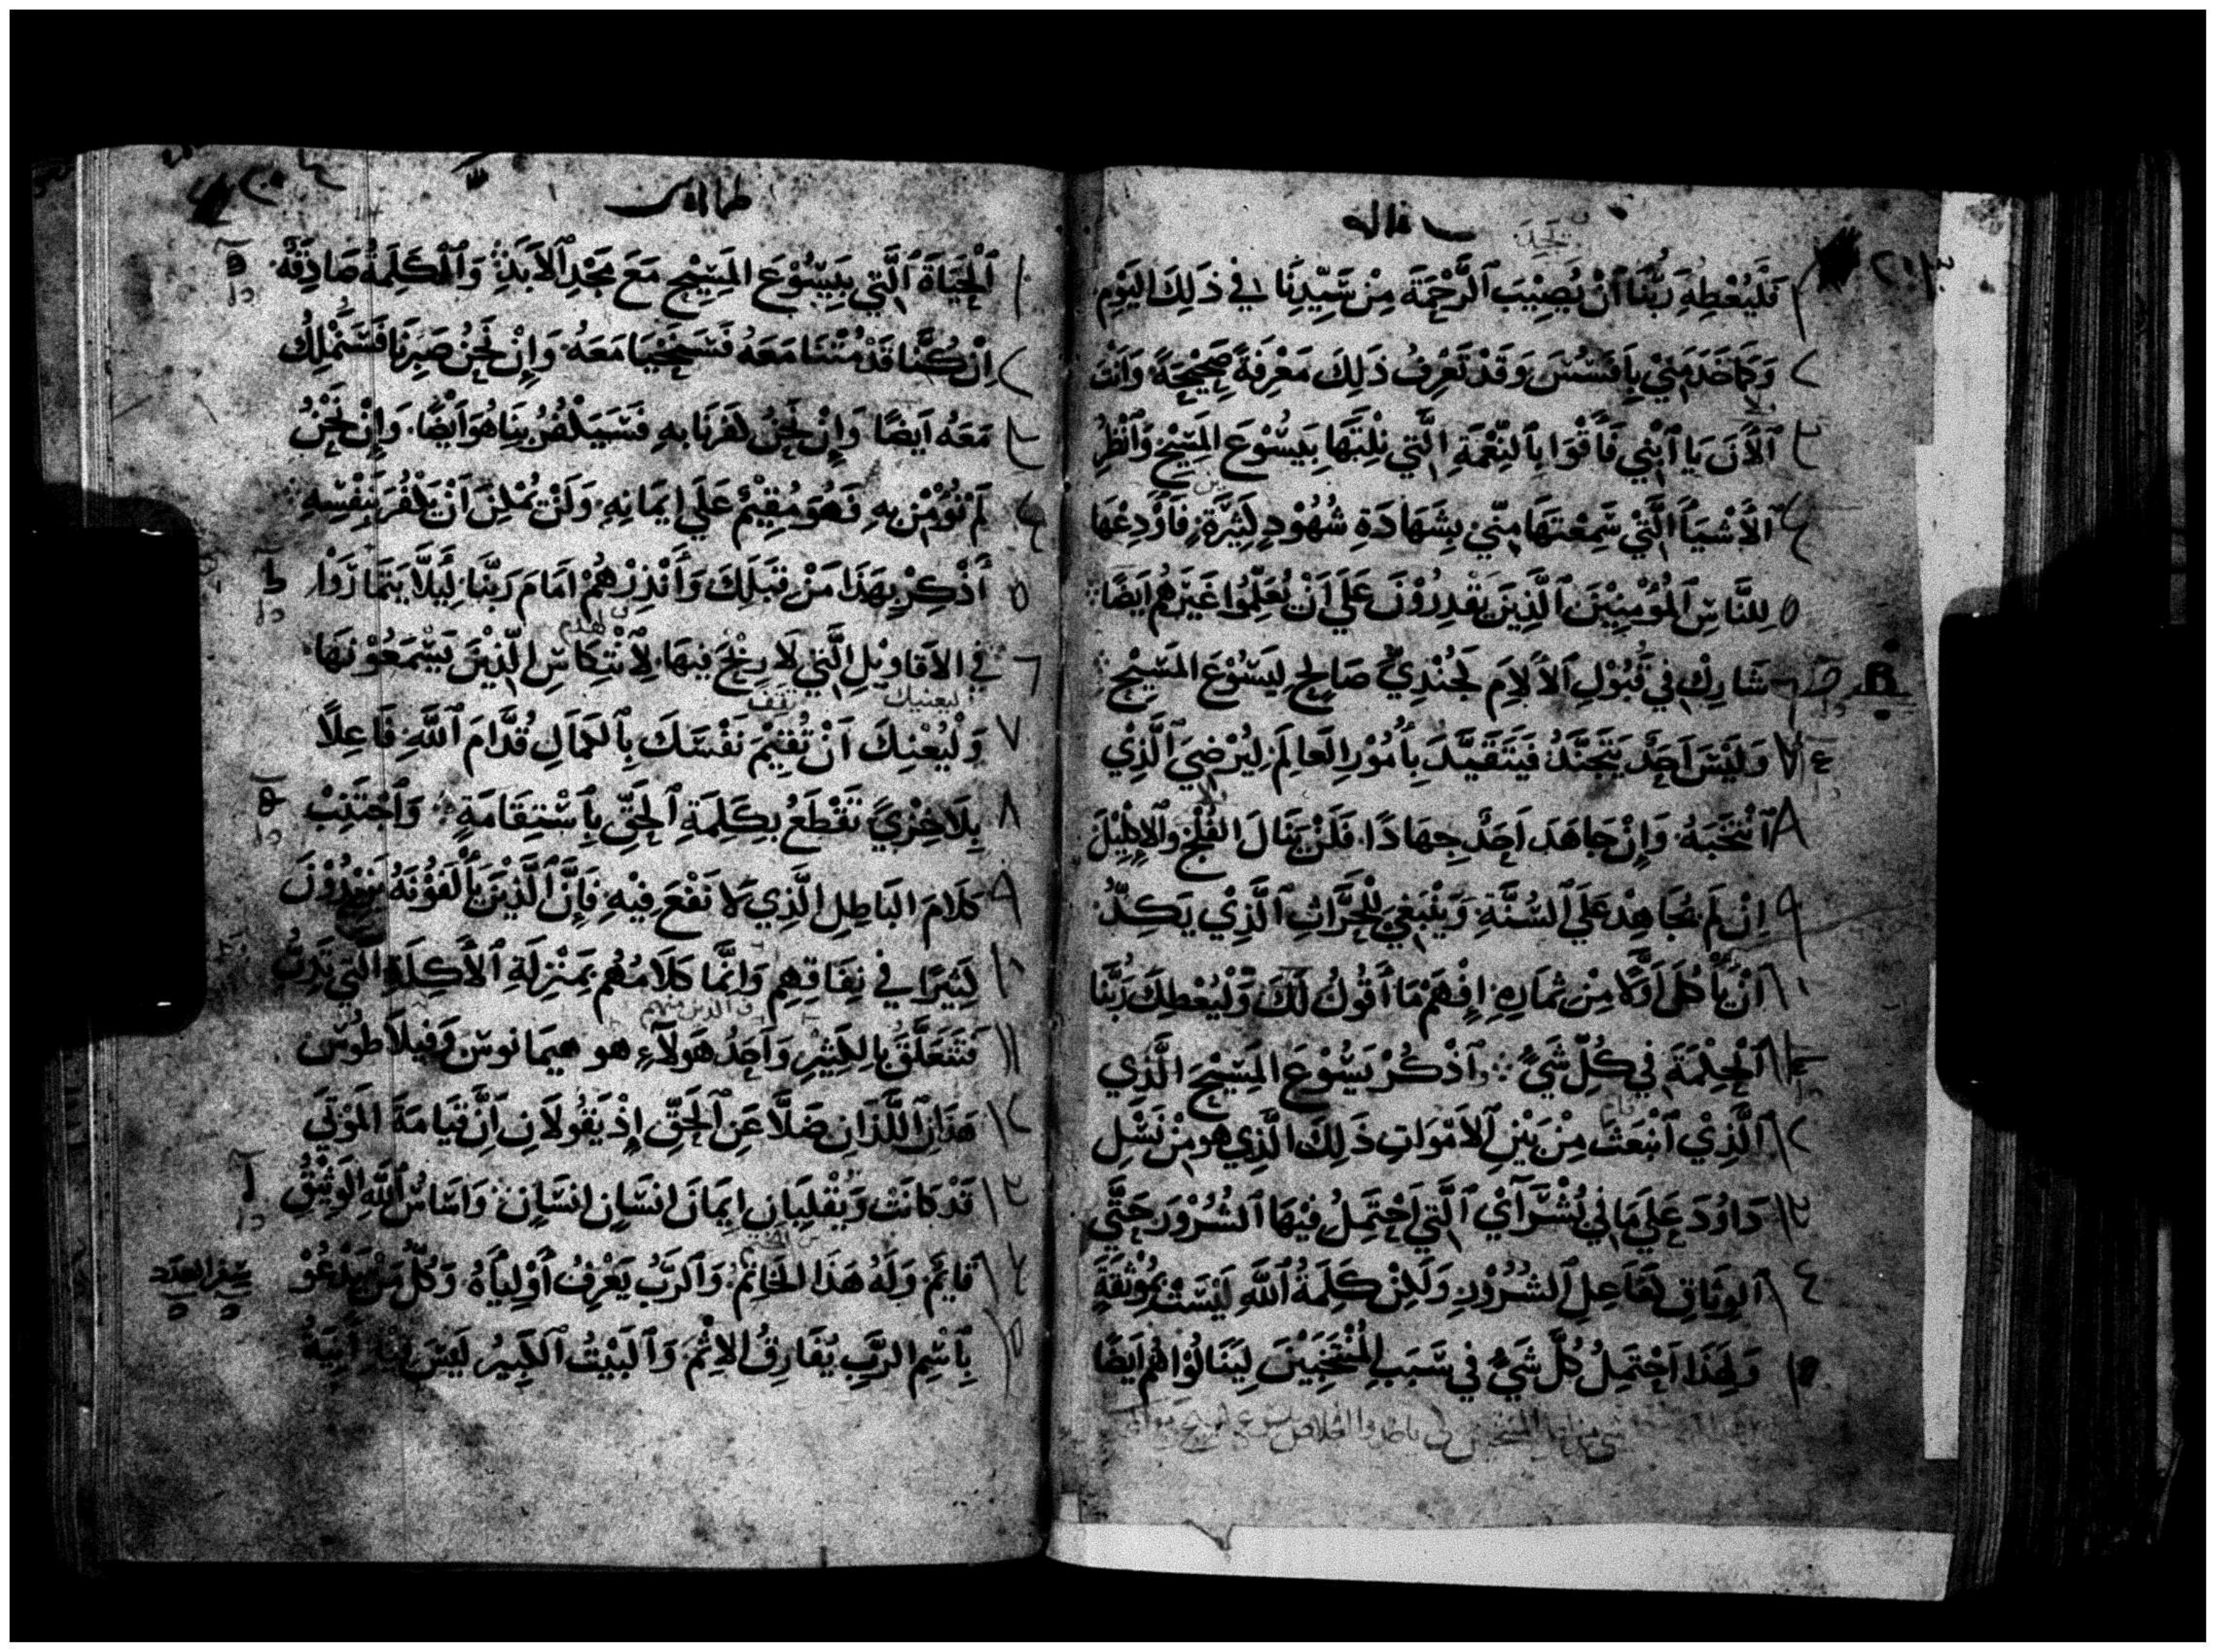 رساله
تجد
فَلْيُعْطِهِ رَبُّنَا اَنْ يُصِيْبَ ٱلرَّحْمَةَ مِنْ سَيِّدِنَا فِي ذَلِكَ اليَوْمِ
وَكَمَا خَدَمَنِيْ بِاَفَسُسَ وَقَدْ تَعْرِفُ ذَلِكَ مَعْرِفَةً صَحِيْحَةً وَاَنْتَ
ٱلْاَنَ يَا ٱبْنِي فَاَقْوَا بِٱلنِّعْمَةِ الَّتِي نِلْتَهَا بِيَسُوْعَ المَسِيْحِ وَٱنْظُرِ
ٱلْاَشْيَآءَ الَّتِيْ سَمِعْتَهَا مِنِّي بِشَهَادَةِ شُهُوْدٍ كَثِيْرَةٍ فَاَوْدِعْهَا
لِلنَّاسِ ٱلمُؤْمِنِيْنَ ٱلَّذِيْنَ يَقْدِرُوْنَ عَلَى اَنْ يُعَلِّمُوْا غَيْرَهُمْ اَيْضًا
شَارِكْ فِي قُبُوْلِ ٱلْاَلَامِ كَجُنْدِيٍّ صَالِحٍ لِيَسُوْعَ المَسِيْحِ
وَلَيْسَ اَحَدٌ يَتَجَنَّدُ فَيَتَقَيَّدَ بِاُمُوْرِ العَالَمِ لِيُرْضِيَ ٱلَّذِيْ
ٱنْتَخَبَهُ وَاِنْ جَاهَدَ اَحَدٌ جِهَادًا فَلَنْ يَنَالَ الفُلْجَ وَٱلْاِكْلِيْلَ
اِنْ لَمْ يُجَاهِدْ عَلَى ٱلسُّنَّةِ وَيَنْبَغِي لِلْحَرَّاثِ ٱلَّذِيْ يَكِدُّ
اَنْ يَأْكُلَ اَوَّلًا مِنْ ثِمَارِهِ اِفْهَمْ مَا اَقُوْلُ لَكَ وَلْيُعْطِكَ رَبُّنَا
ٱلْحِكْمَةَ فِي كُلِّ شَيْءٍ وَٱذْكُرْ يَسُوْعَ المَسِيْحَ الَّذِي
قام
الَّذِيْ ٱنْبَعَثَ مِنْ بَيْنِ ٱلْاَمْوَاتِ ذَلِكَ الَّذِي هو مِنْ نَسْلِ
دَاوُدَ عَلَى مَا فِي بُشْرَآيْ ٱلَّتِي اَحْتَمِلُ فِيْهَا ٱلشُّرُوْرَ حَتَّى
ٱلوِثَاقِ كَفَاعِلِ ٱلشُّرُوْرِ وَلَكِنْ كَلِمَةُ ٱللَّهِ لَيْسَتْ بِمُوْثَقَةٍ
وَلِهَذَا اَحْتَمِلُ كُلَّ شَيْءٍ فِي سَبَبِ المُنْتَخَبِيْنَ لِيَنَالُوْا هُمْ اَيْضًا
طماثاوس
ٱلْحَيَاةَ ٱلَّتِي بِيَسُوْعَ المَسِيْحِ مَعَ مَجْدِ ٱلْاَبَدِ وَٱلْكَلِمَةُ صَادِقَةٌ
اِنْ كُنَّا قَدْ مُتْنَا مَعَهُ فَسَنَحْيَا مَعَهُ وَاِنْ نَحْنُ صَبَرْنَا فَسَنَمْلِكُ
مَعَهُ اَيْضًا وَاِنْ نَحْنُ كَفَرْنَا بِهِ فَسَيَكْفُرُ بِنَا هُوَ اَيْضًا وَاِنْ نَحْنُ
لَمْ نُؤْمِنْ بِهِ فَهُوَ مُقِيْمٌ عَلَى اِيْمَانِهِ وَلَنْ يُمْكِنَ اَنْ يَكْفُرَ بِنَفْسِهِ
أَذْكِرْ بِهَذَا مَنْ قِبَلِكَ وَأَنْذِرْهُمْ اَمَامَ رَبِّنَا لِيَلَّا يَتَمَارَوْا
فِي الاَقَاوِيْلِ الَّتِي لَا رِبْحَ فِيهَا لِٱنْتِكَاسِ الَّذِيْنَ يَسْمَعُوْنَهَا
ليعنيك تقف
وَلْيُعْنِكَ اَنْ تُقِيْمَ نَفْسَكَ بِٱلكَمَالِ قُدَّامَ ٱللَّهِ فَاعِلًا
بِلَا خِزْيٍ تَقْطَعُ بِكَلِمَةِ ٱلحَقِّ بِٱسْتِقَامَةٍ وَٱجْتَنِبْ
كَلَامَ البَاطِلِ الَّذِي لَا نَفْعَ فِيْهِ فَاِنَّ ٱلَّذِيْنَ يَأْلَفُوْنَهُ يَزِيْدُوْنَ
كَثِيْرًا فِي نِفَاقِهِمْ وَاِنَّمَا كَلَامُهُمْ بِمَنْزِلَةِ ٱلْاَكِلَةِ الَّتِي تَدِبُّ
والذين منهم
فَتَتَعَلَّقُ بِالكَثِيْرِ وَاَحَدُ هَولَآءِ هو هيمَانوسَ وَفِيلَاطُوسَ
هَذَانِ ٱللَّذَانِ ضَلَّا عَنِ ٱلحَقِّ اِذْ يَقُولَانِ اَنَّ قِيَامَةَ المَوْتَى
قَدْ كَانَتْ وَيَقْلِبَانِ اِيمَانَ اِنْسَانٍ اِنْسَانٍ وَاَسَاسُ ٱللَّهِ الوَثِيْقُ
قَايِمٌ وَلَهُ هَذَا الخَاتِمُ وَٱلرَّبُّ يَعْرِفُ أَوْلِيَآءَهُ وَكُلُّ مَنْ يَدْعُوْ
سِفر العدد
بِٱسْمِ الرَّبِّ يُفَارِقُ الاِثْمَ وَٱلبَيْتُ ٱلكَبِيْرُ لَيْسَ اِنَّمَا آنِيَةُ